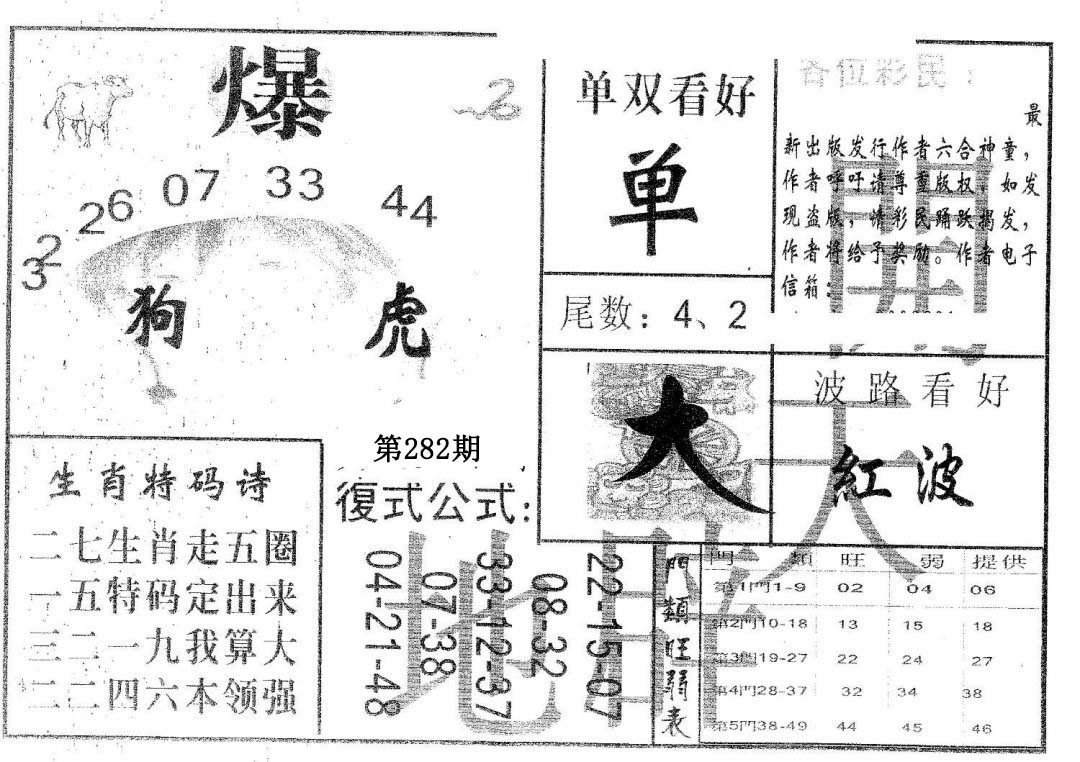 爆
32 26 07 33 44
狗 虎
单双看好
单
尾数：4、2
各位彩民：
最
新出版发行作者六合神童，
作者呼吁请尊重版权，如发
现盗版，情彩民踊跃揭发，
作者将给予奖励。作者电子
信箱：
大
波路看好
紅波
第282期
生肖特码诗
二七生肖走五圈
一五特码定出来
三二一九我算大
二二四六本领强
復式公式：
04-21-48
07-38
33-12-37
08-32
22-15-07
門類旺弱表
門類 旺 弱 提供
第1門1-9 02 04 06
第2門10-18 13 15 18
第3門19-27 22 24 27
第4門28-37 32 34 38
第5門38-49 44 45 46